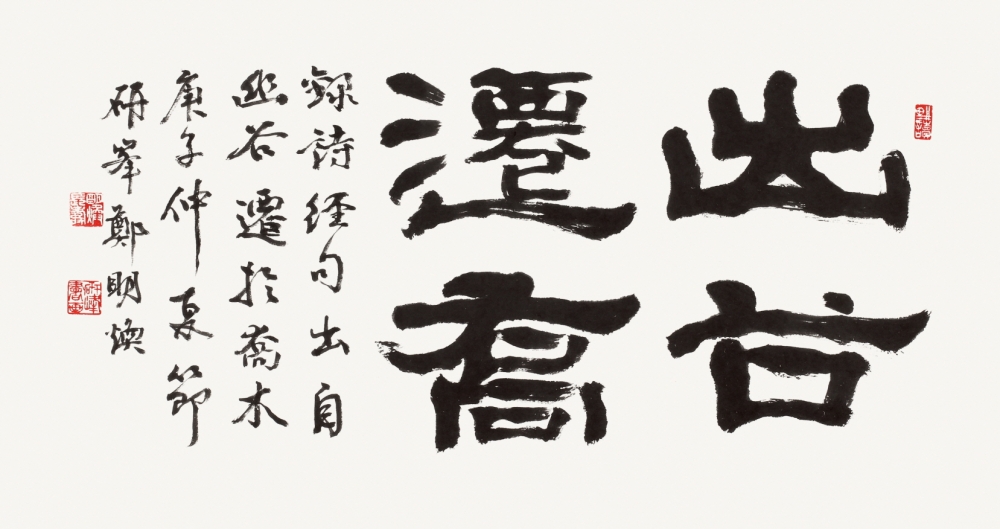 出谷
遷喬
錄詩經句出自
幽谷遷於喬木
庚子仲夏節
研峯鄭明煥